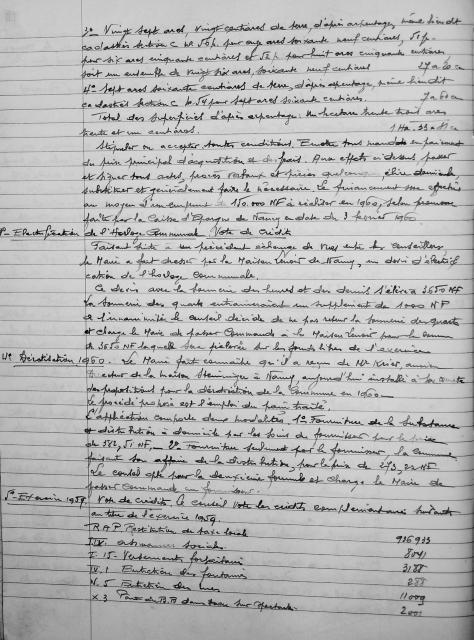 3° Vingt sept ares, vingt centiares de terre, d'après arpentage, même lieudit
cadastrés section C N° 50p. pour onze ares soixante neuf centiares, 51p.
pour six ares cinquante centiares et 52p. pour huit ares cinquante centiares
soit un ensemble de vingt six ares, soixante neuf centiares 27a 20ca
4° Sept ares soixante centiares de terre, d'après arpentage, même lieudit
cadastrés section C N° 54 pour sept ares soixante centiares. 7a 60ca
Total des superficies d'après arpentage : Un hectare trente trois ares
trente et un centiares. 1Ha. 33a 31ca
Stipuler ou accepter toutes conditions. Emettre tous mandats en paiement
du prix principal d'acquisition et de frais. Aux effets ci-dessus, passer
et signer tous actes, procès verbaux et pièces quelconques, élire domicile,
substituer et généralement faire le nécessaire. Le financement sera effectué
au moyen d'un emprunt de 150.000 NF à réaliser en 1960, selon promesse
faite par la Caisse d'Epargne de Nancy en date du 3 février 1960
Electrification de l'Horloge Communale Vote de Crédit
Faisant suite à un précédent échange de vues entre les Conseillers
le Maire a fait dresser par la Maison Lenoir de Nancy, un devis d'électrifi
cation de l'horloge Communale.
Ce devis avec la sonnerie des heures et des demis s'élève à 3650 NF
La sonnerie des quarts entrainerait un supplément de 1000 NF
A l'unanimité le Conseil décide de ne pas retenir la sonnerie des quarts
et charge le Maire de passer Commande à la Maison Lenoir pour la somme
de 3650 NF laquelle sera prélevée sur les fonds libres de l'exercice
4° Dératisation 1960. Le Maire fait connaître qu'il a reçu de Mr Krier, ancien
directeur de la maison Steininger à Nancy, aujourd'hui installé à son compte
des propositions pour la dératisation de la Commune en 1960
Le procédé proposé est l'emploi du pain traité.
L'application comporte deux modalités. 1° Fourniture de la substance
et distribution à domicile par les soins du fournisseur pour le prix
de 382,51 NF, 2° Fourniture seulement par le fournisseur, la Commune
faisant son affaire de la distribution, pour le prix de 273,22 NF
Le Conseil opte pour la deuxième formule et charge le Maire de
passer Commande au fournisseur.
5° Exercice 1959. Vote de crédits. Le Conseil Vote les crédits complémentaires suivants
au titre de l'exercice 1959.
R.A.P. Restitution de taxe locale 936933
assurances sociales 8041
I. 15. Versements forfaitaires 3188
IV. 1 Entretien des fontaines 288
N. 5 Entretien des rues 11009
X 3 Part du B.A dans taxe sur spectacles 2001